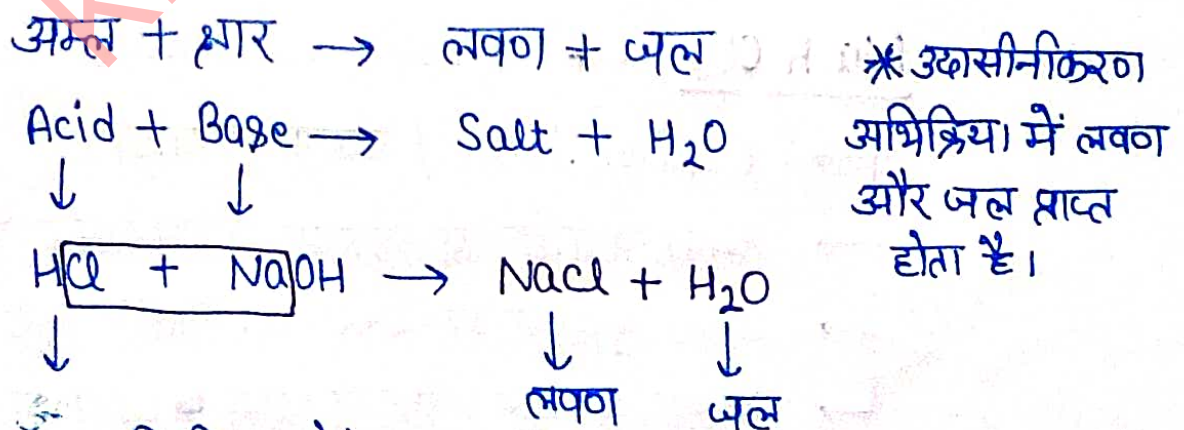 अम्ल + क्षार → लवण + जल
Acid + Base → Salt + H₂O
↓ ↓
HCl + NaOH → NaCl + H₂O
↓ ↓ ↓
लवण जल
* उदासीनीकरण
अभिक्रिया में लवण
और जल प्राप्त
होता है।